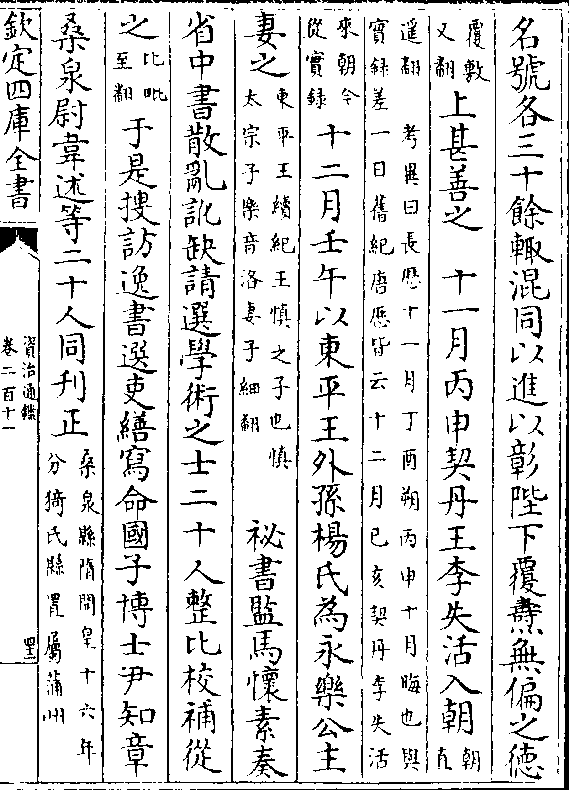 名號各三十餘輙混同以進以彰陛下覆燾無偏之德
覆敷
又翻
上甚善之　十一月丙申契丹王李失活入朝
朝
直
遥翻　考異曰長厯十一月丁酉朔丙申十月晦也與
實録差一日舊紀唐厯皆云十二月己亥契丹李失活
來朝今
從實録
十二月壬午以東平王外孫楊氏為永樂公主
妻之
東平王續紀王慎之子也慎
太宗子樂音洛妻子細翻
祕書監馬懷素奏
省中書散亂訛缺請選學術之士二十人整比校補從
之
比毗
至翻
于是搜訪逸書選吏繕寫命國子博士尹知章
桑泉尉韋述等二十人同刊正
桑泉縣隋開皇十六年
分猗氏縣置屬蒲州
欽定四庫全書
資治通鑑
卷二百十一